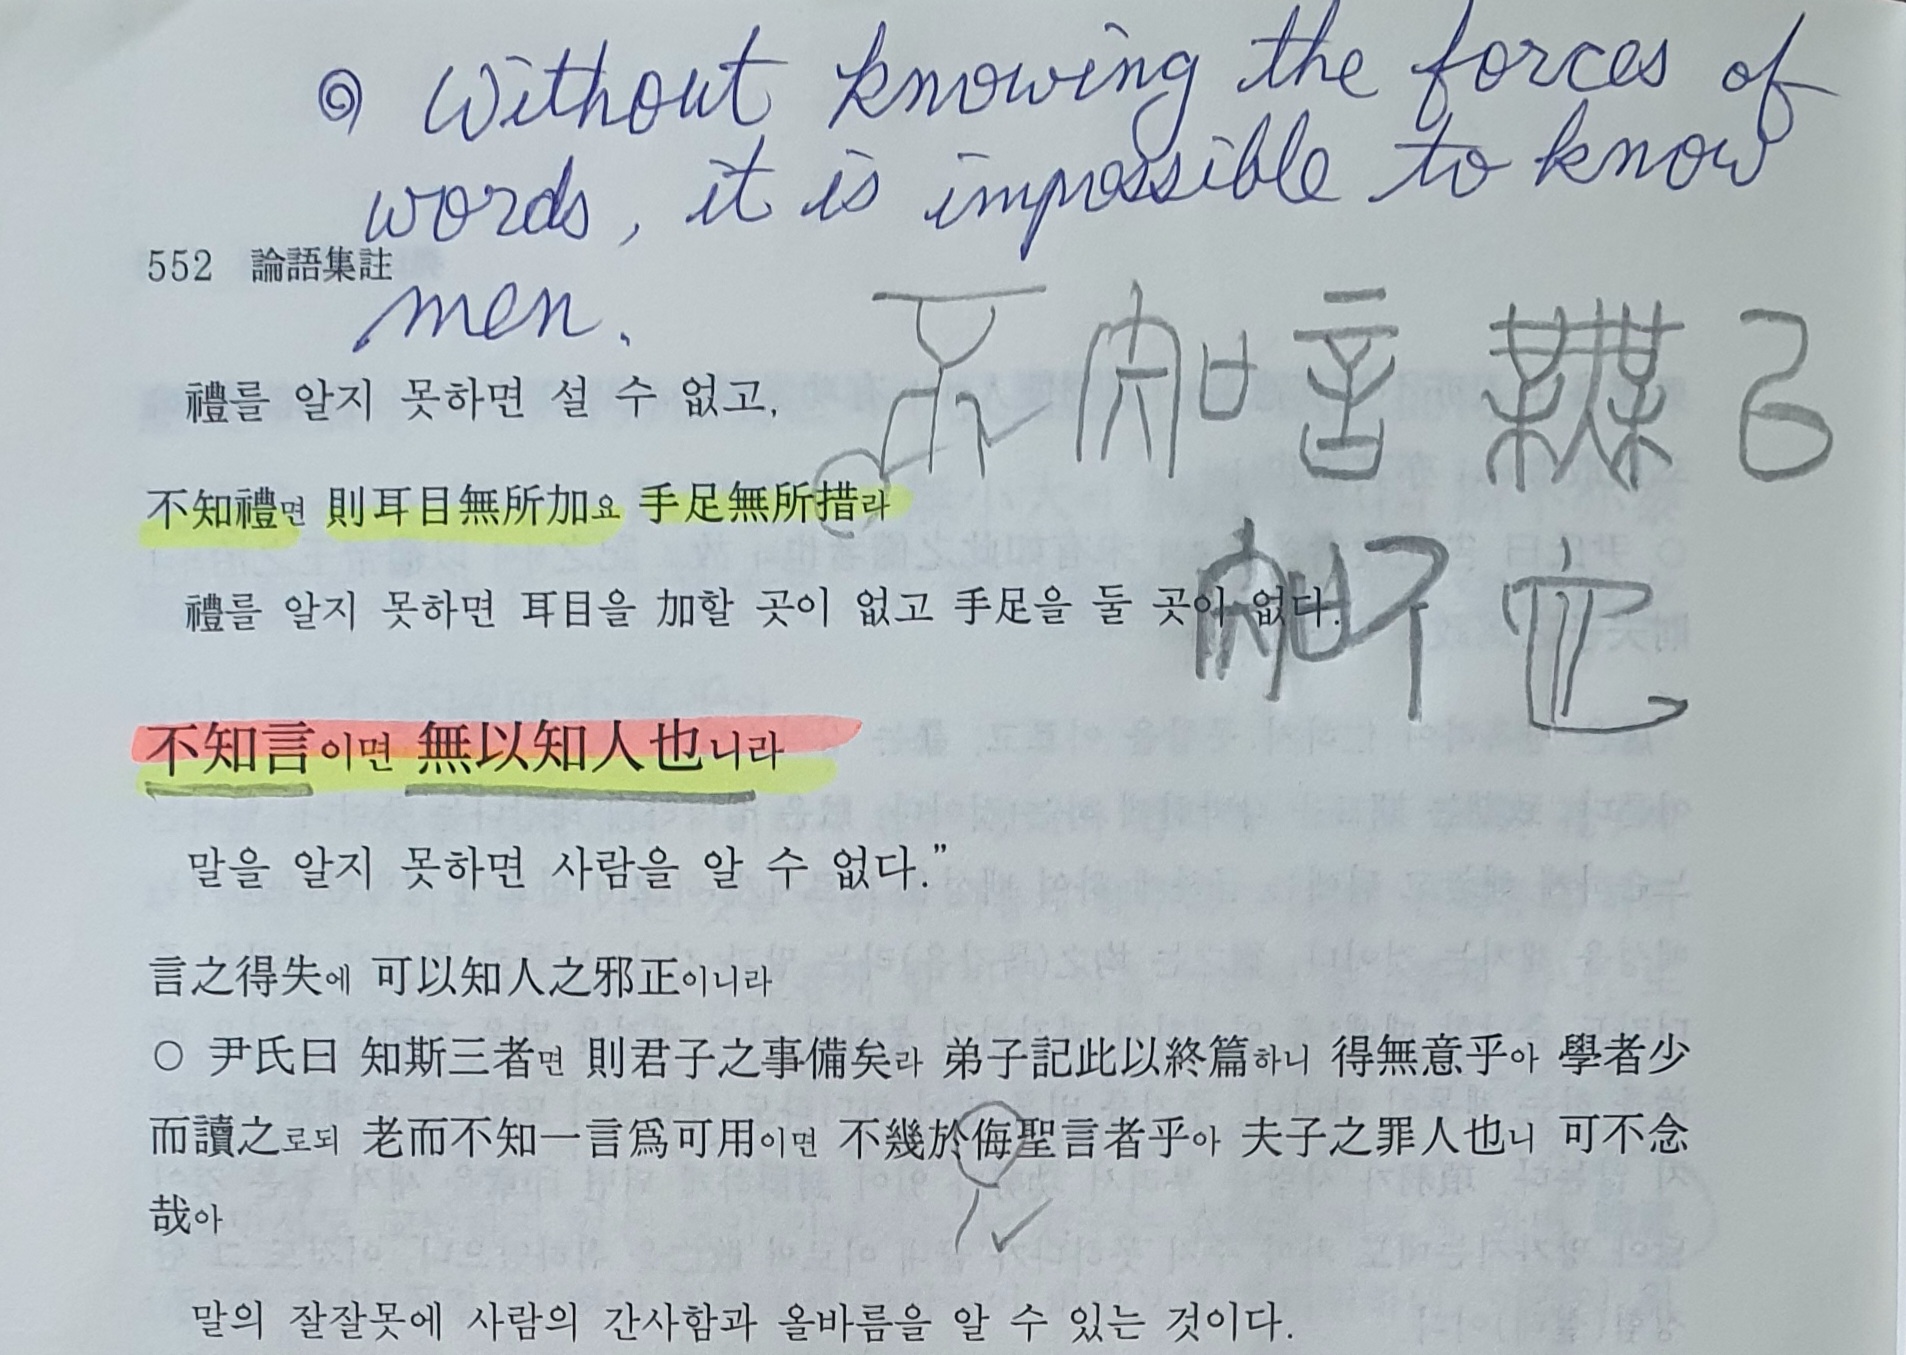 ◎ Without knowing the forces of
words, it is impossible to know
men.
552 論語集註
不知言無以
知人也
禮를 알지 못하면 설 수 없고,
不知禮면 則耳目無所加요 手足無所措라
禮를 알지 못하면 耳目을 加할 곳이 없고 手足을 둘 곳이 없다.
不知言이면 無以知人也니라
말을 알지 못하면 사람을 알 수 없다.”
言之得失에 可以知人之邪正이니라
○ 尹氏曰 知斯三者면 則君子之事備矣라 弟子記此以終篇하니 得無意乎아 學者少
而讀之로되 老而不知一言爲可用이면 不幾於侮聖言者乎아 夫子之罪人也니 可不念
哉아
말의 잘잘못에 사람의 간사함과 올바름을 알 수 있는 것이다.